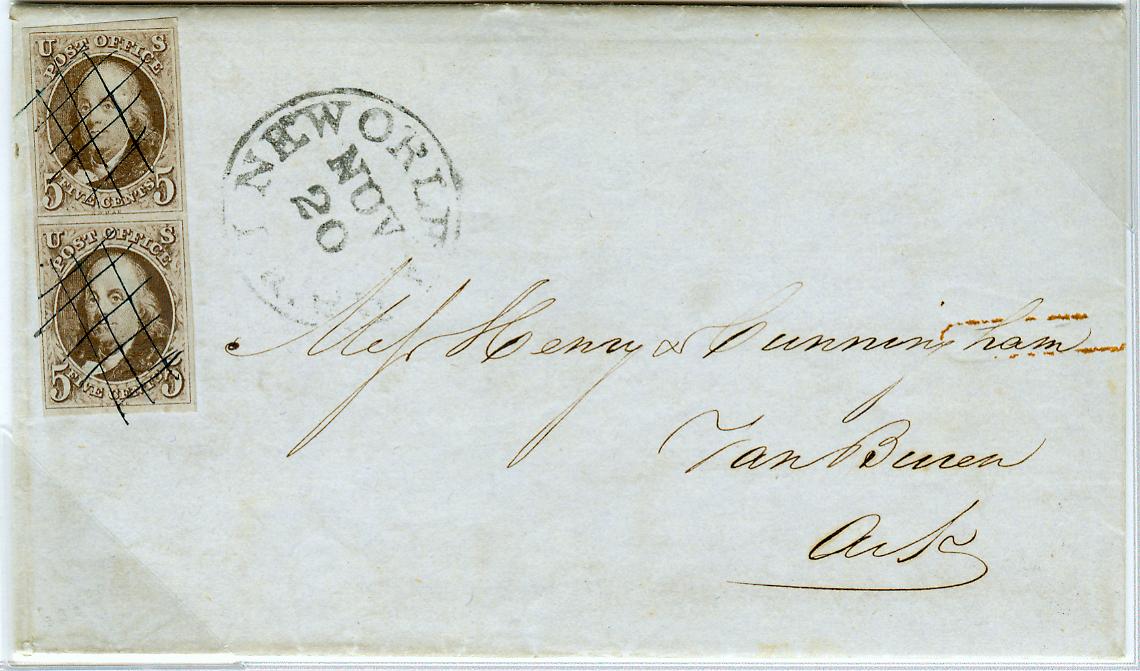 U S
POST OFFICE
5 FIVE CENTS 5
U S
POST OFFICE
5 FIVE CENTS 5
NEW ORL
NOV
20
Mess Henry & Cunningham
Van Buren
Ark